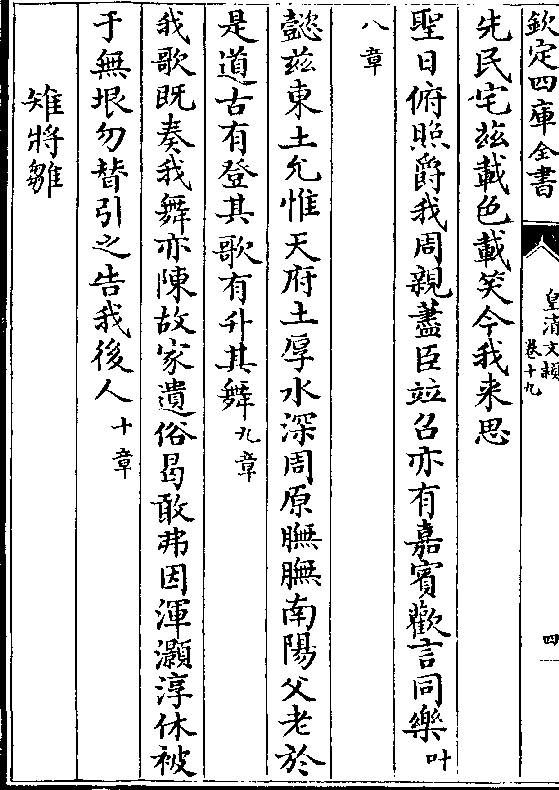 欽定四庫全書
皇清文穎
卷十九
四
先民宅兹載色載笑今我来思
聖日俯照爵我周親藎臣竝召亦有嘉賓歡言同樂叶
八章
懿兹東土允惟天府土厚水深周原膴膴南陽父老於
是道古有登其歌有升其舞九章
我歌既奏我舞亦陳故家遺俗曷敢弗因渾灝淳休被
于無垠勿替引之告我後人十章
雉將雛